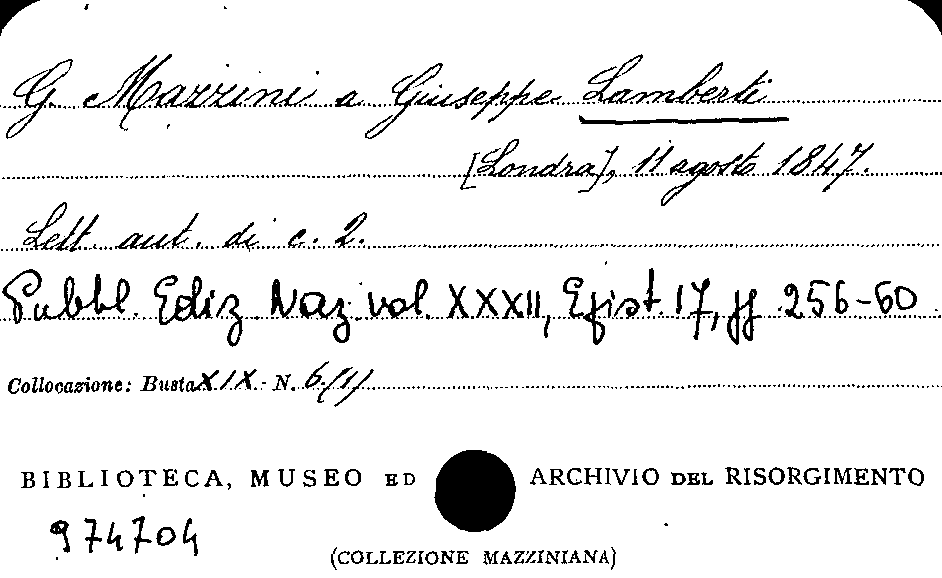 G. Mazzini a Giuseppe Lamberti
[Londra], 11 agosto 1847.
Lett. aut. di c. 2.
Pubbl. Ediz. Naz. vol. XXXII, Epist. 17, pp. 256-60
Collocazione: Busta XIX - N. 6/(1)
BIBLIOTECA, MUSEO ED ARCHIVIO DEL RISORGIMENTO
974704
(COLLEZIONE MAZZINIANA)